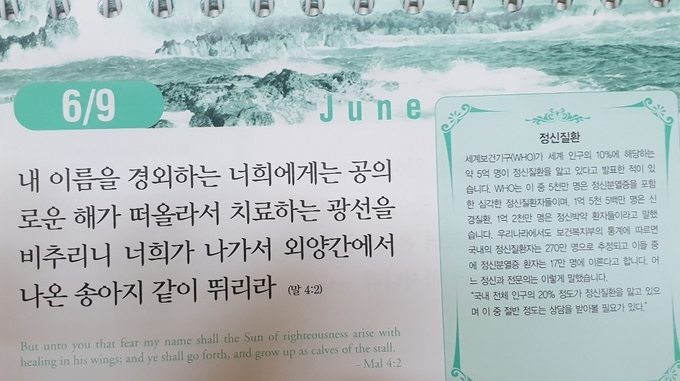 6/9
June
내 이름을 경외하는 너희에게는 공의
로운 해가 떠올라서 치료하는 광선을
비추리니 너희가 나가서 외양간에서
나온 송아지 같이 뛰리라 (말 4:2)
But unto you that fear my name shall the Sun of righteousness arise with
healing in his wings; and ye shall go forth, and grow up as calves of the stall.
- Mal 4:2
정신질환
세계보건기구(WHO)가 세계 인구의 10%에 해당하는
약 5억 명이 정신질환을 앓고 있다고 발표한 적이 있
습니다. WHO는 이 중 5천만 명은 정신분열증을 포함
한 심각한 정신질환자들이며, 1억 5천 5백만 명은 신
경질환, 1억 2천만 명은 정신박약 환자들이라고 말했
습니다. 우리나라에서도 보건복지부의 통계에 따르면
국내의 정신질환자는 270만 명으로 추정되고 이들 중
에 정신분열증 환자는 17만 명에 이른다고 합니다. 어
느 정신과 전문의는 이렇게 말했습니다.
"국내 전체 인구의 20% 정도가 정신질환을 앓고 있으
며 이 중 절반 정도는 상담을 받아볼 필요가 있다."